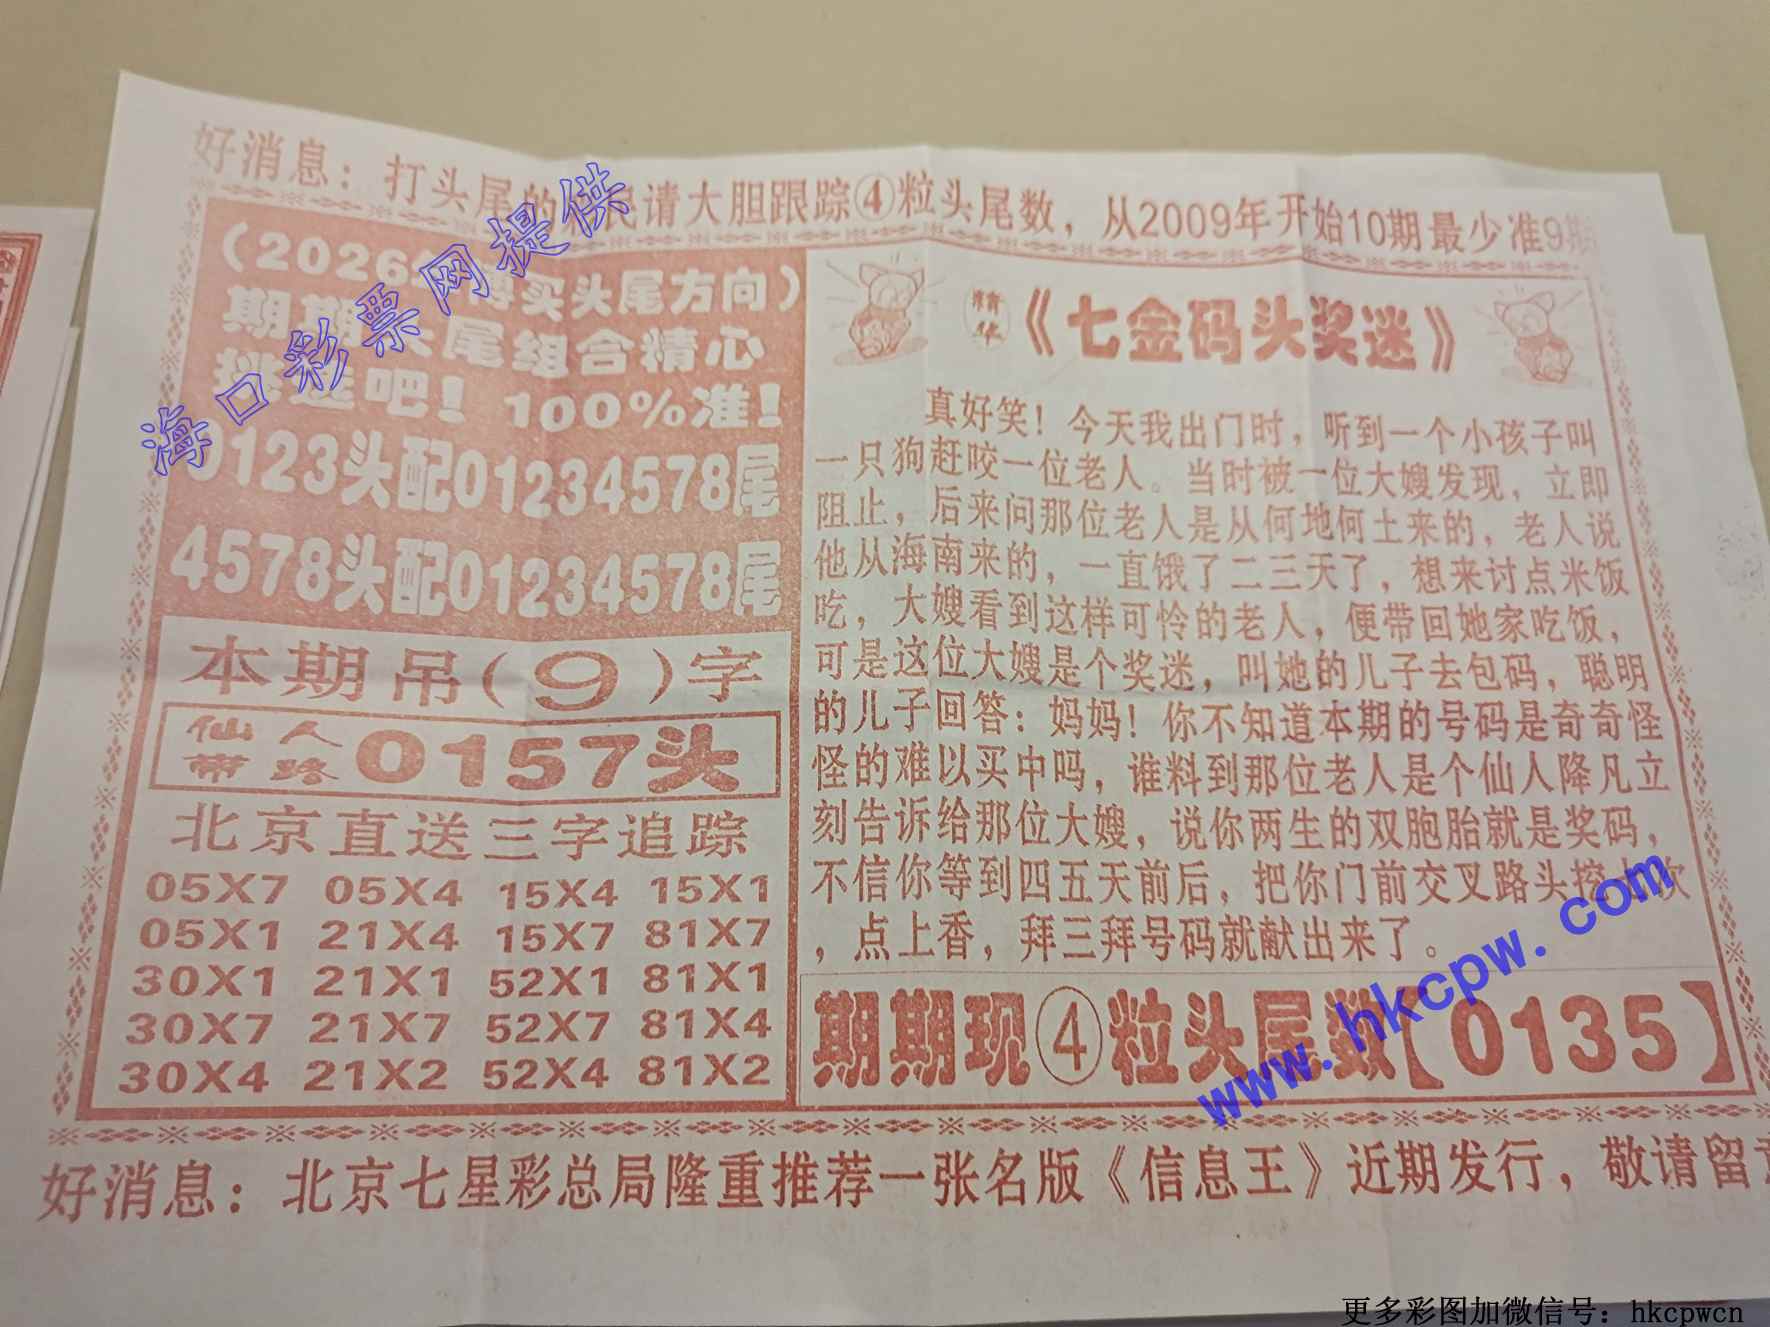 好消息：打头尾的彩民请大胆跟踪④粒头尾数，从2009年开始10期最少准9期
（2026 得买头尾方向）
期期头尾组合精心
挑选吧！100%准！
0123头配01234578尾
4578头配01234578尾
本期吊（9）字
仙人带路 0157头
北京直送三字追踪
05X7 05X4 15X4 15X1
05X1 21X4 15X7 81X7
30X1 21X1 52X1 81X1
30X7 21X7 52X7 81X4
30X4 21X2 52X4 81X2
精华《七金码头奖迷》
真好笑！今天我出门时，听到一个小孩子叫
一只狗赶咬一位老人。当时被一位大嫂发现，立即
阻止，后来问那位老人是从何地何土来的，老人说
他从海南来的，一直饿了二三天了，想来讨点米饭
吃，大嫂看到这样可怜的老人，便带回她家吃饭，
可是这位大嫂是个奖迷，叫她的儿子去包码，聪明
的儿子回答：妈妈！你不知道本期的号码是奇奇怪
怪的难以买中吗，谁料到那位老人是个仙人降凡立
刻告诉给那位大嫂，说你两生的双胞胎就是奖码，
不信你等到四五天前后，把你门前交叉路头挖 次
，点上香，拜三拜号码就献出来了。
期期现④粒头尾数【0135】
好消息：北京七星彩总局隆重推荐一张名版《信息王》近期发行，敬请留意
海口彩票网提供
www.hkcpw.com
更多彩图加微信号：hkcpwcn